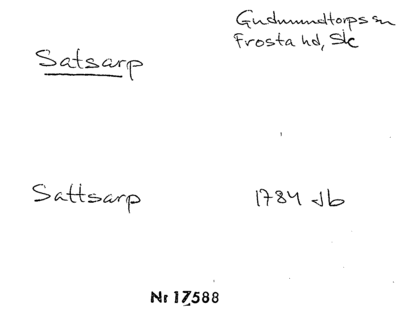 Gudmundtorps sn
Frosta hd, Sk
Satsarp
Sattsarp 1784 Jb
Nr 17588